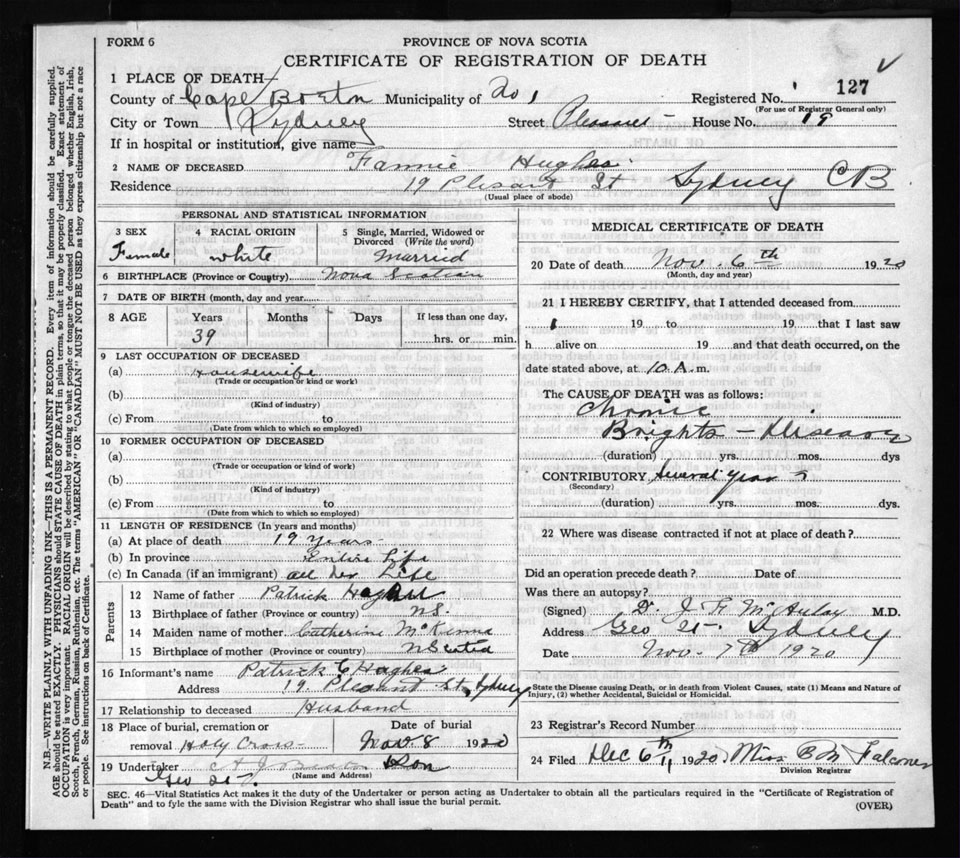 FORM 6
PROVINCE OF NOVA SCOTIA
CERTIFICATE OF REGISTRATION OF DEATH
1 PLACE OF DEATH
County of Cape Breton Municipality of No 1 Registered No. 127
(For use of Registrar General only)
City or Town Sydney Street Pleasant House No. 19
If in hospital or institution, give name
2 NAME OF DECEASED Fannie Hughes
Residence 19 Plesant St Sydney CB
(Usual place of abode)
PERSONAL AND STATISTICAL INFORMATION
3 SEX Female
4 RACIAL ORIGIN white
5 Single, Married, Widowed or Divorced (Write the word) Married
6 BIRTHPLACE (Province or Country) Nova Scotian
7 DATE OF BIRTH (month, day and year)
8 AGE Years 39 Months Days If less than one day, hrs. or min.
9 LAST OCCUPATION OF DECEASED
(a) Housewife
(Trade or occupation or kind or work)
(b)
(Kind of industry)
(c) From to
(Date from which to which so employed)
10 FORMER OCCUPATION OF DECEASED
(a)
(Trade or occupation or kind of work)
(b)
(Kind of industry)
(c) From to
(Date from which to which so employed)
11 LENGTH OF RESIDENCE (In years and months)
(a) At place of death 19 years
(b) In province Entire Life
(c) In Canada (if an immigrant) all her Life
Parents
12 Name of father Patrick
13 Birthplace of father (Province or country) N.S.
14 Maiden name of mother Catherine McKinna
15 Birthplace of mother (Province or country) N Scotia
16 Informant's name Patrick C Hughes
Address 19 Plesant St Sydney
17 Relationship to deceased Husband
18 Place of burial, cremation or removal Holy Cross
Date of burial Nov. 8 1920
19 Undertaker A J Son
Geo St. (Name and Address)
MEDICAL CERTIFICATE OF DEATH
20 Date of death Nov. 6th 1920
(Month, day and year)
21 I HEREBY CERTIFY, that I attended deceased from
1 19 to 19 that I last saw
h alive on 19 and that death occurred, on the
date stated above, at 10 A.m.
The CAUSE OF DEATH was as follows:
Chronic
Brights - Disease
(duration) yrs. mos. dys
CONTRIBUTORY Several Years
(Secondary)
(duration) yrs. mos. dys.
22 Where was disease contracted if not at place of death?
Did an operation precede death? Date of
Was there an autopsy?
(Signed) Dr. J. F. McAulay M.D.
Address Geo St. Sydney
Date Nov. 7th 1920
State the Disease causing Death, or in death from Violent Causes, state (1) Means and Nature of Injury, (2) whether Accidental, Suicidal or Homicidal.
23 Registrar's Record Number
24 Filed Dec 6th 1920. Miss C M Falconer
Division Registrar
SEC. 46—Vital Statistics Act makes it the duty of the Undertaker or person acting as Undertaker to obtain all the particulars required in the "Certificate of Registration of
Death" and to fyle the same with the Division Registrar who shall issue the burial permit.
(OVER)
N.B.—WRITE PLAINLY WITH UNFADING INK—THIS IS A PERMANENT RECORD. Every item of information should be carefully supplied.
AGE should be stated EXACTLY. PHYSICIANS should STATE CAUSE OF DEATH in plain terms, so that it may be properly classified. Exact statement of
OCCUPATION is very important. RACIAL ORIGIN will be described by stating to what people or tongue the deceased person belonged, whether English, Irish,
Scotch, French, German, Russian, Ruthenian, etc. The terms "AMERICAN" OR "CANADIAN" MUST NOT BE USED as they express citizenship but not a race
or people. See instructions on back of Certificate.